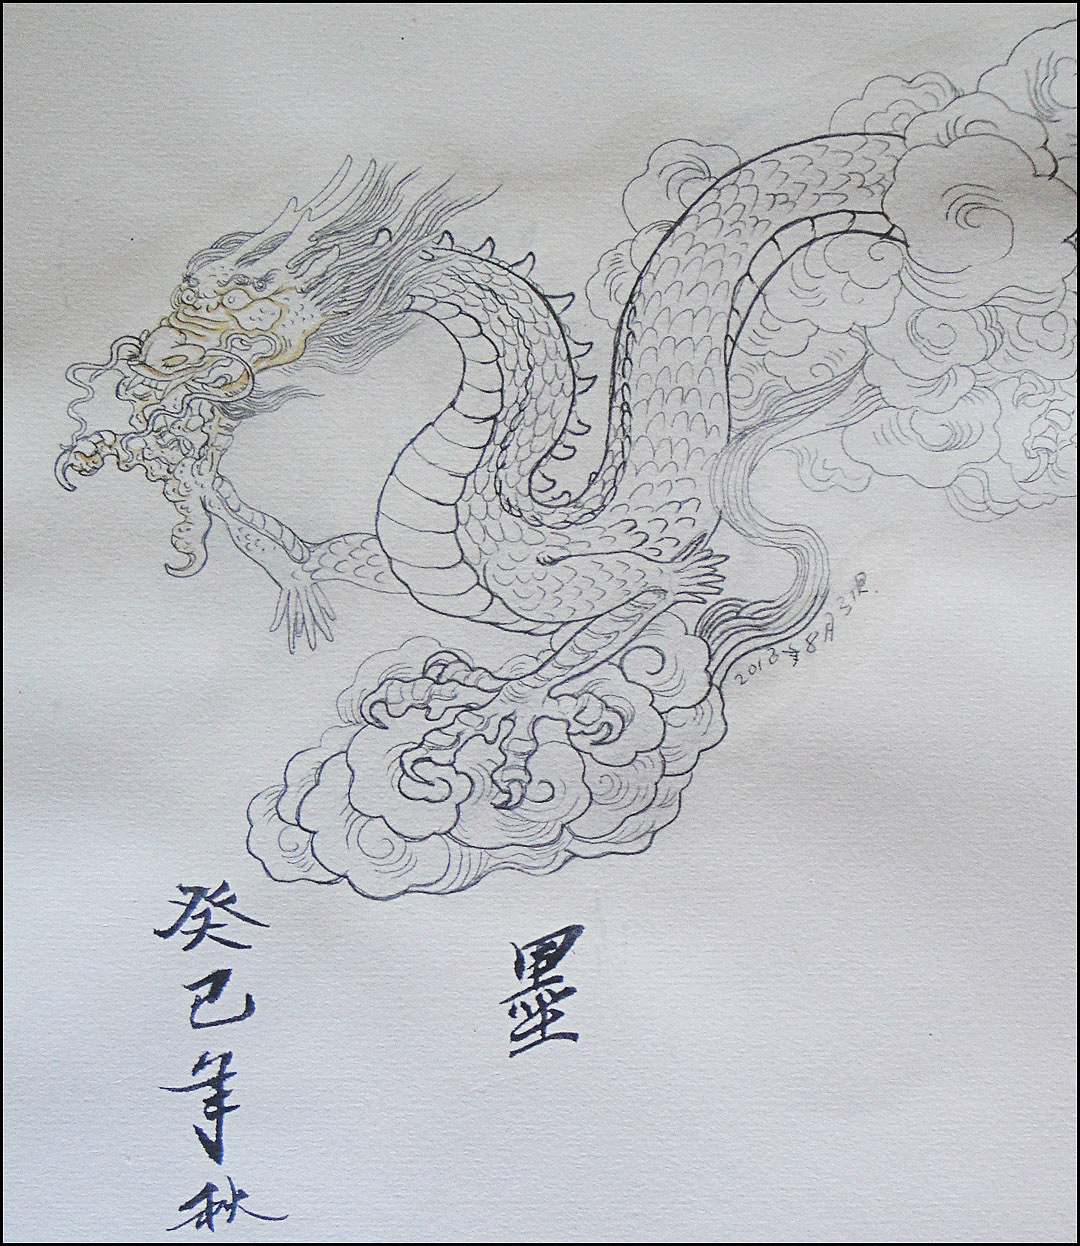 2013年8月31日.
墨
癸巳年秋